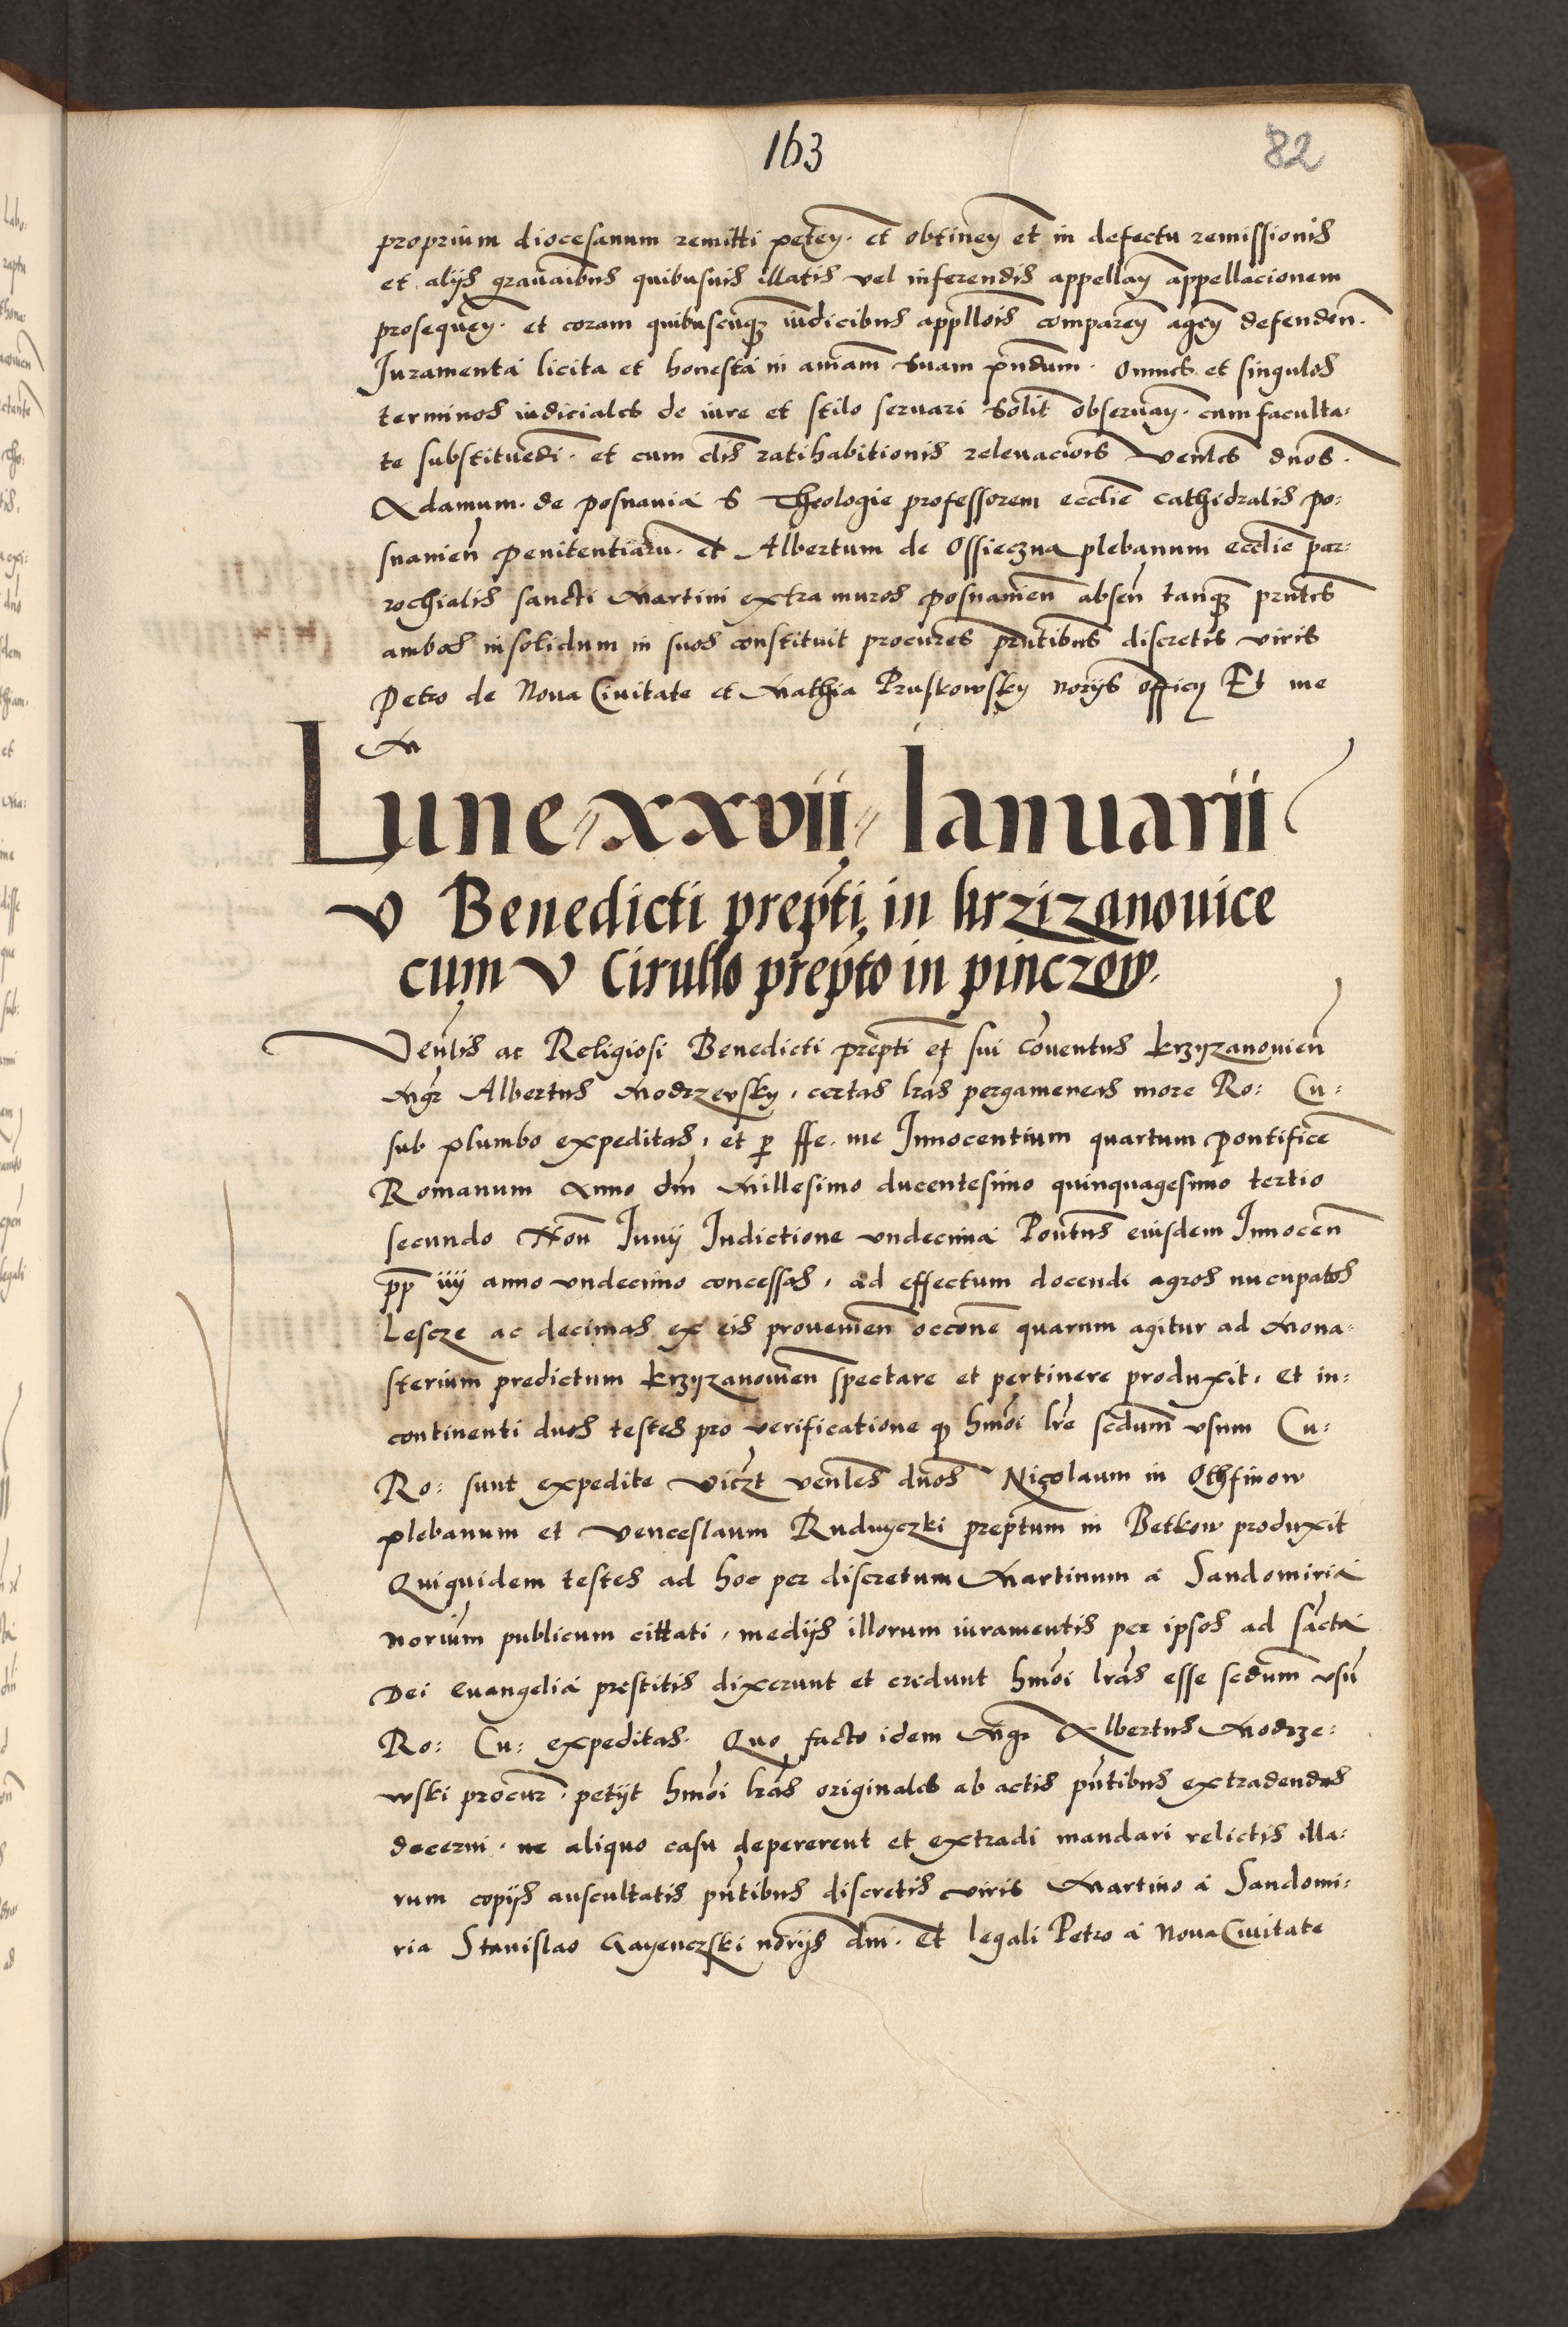 163
82
proprium diocesanum remitti peteñ. et obtineñ et in defectu remissionis
et alijs gravaibus quibusuis illatis vel inferendis appellañ appellacionem
prosequeñ. et coram quibuscuq iudicibus appllois compareñ ageñ defendeñ.
Juramenta licita et honesta in aniam suam pñdum. omnes et singulos
terminos iudiciales de iure et stilo seruari solit obseruañ. cum faculta:
te substituedi. et cum clis ratihabitionis releuaciois venles dnos.
Adamum. de posnania S Theologie professorem ecclie cathidralis po:
snanieñ penitentiaru. et Albertum de Ossieczna plebanum ecclie par:
rochialis sancti Martini extra muros posnanieñ abseñ tanq prntes
ambos insolidum in suos constituit procures prntibus discretis viris
Petro de Noua Ciuitate et Mathia Pruskowsky norijs officij Et me
M
Lune xxvii Ianuarii
V Benedicti prepti in krzizanouice
cum V Cirullo prepto in pinczow.
Venlis ac Religiosi Benedicti prepti et sui couentus krzyzanouieñ
Mgr Albertus Modrzevsky, certas lras pergameneas more Ro: Cu:
sub plumbo expeditas, et p ffe. me Innocentium quartum pontifice
Romanum Anno dni Millesimo ducentesimo quinquagesimo tertio
secundo Noñ Junij Indictione vndecima Pontus eiusdem Innoceñ
pp iiij anno vndecimo concessas, ad effectum docendi agros nucupatos
Lescze ac decimas ex eis prouenieñ occone quarum agitur ad Mona:
sterium predictum krzyzanowieñ spectare et pertinere produxit, et in:
continenti duos testes pro verificatione q hmoi lre scdum vsum Cu:
Ro: sunt expedite viczt venles dnos Nicolaum in Othfinow
plebanum et Venceslaum Rudnyczki preptum in Betkow produxit
Quiquidem testes ad hoc per discretum Martinum a Sandomiria
norium publicum cittati, medijs illorum iuramentis per ipsos ad sacta
Dei Euangelia prestitis dixerunt et cridunt hmoi lras esse scdum vsu
Ro: Cu: expeditas. Quo facto idem Mgr Albertus Modrze:
wski procur. petijt hmoi lras originales ab actis pntibus extradendas
decerni. ne aliquo casu depererent et extradi mandari relictis illa:
rum copijs auscultatis pntibus discretis viris Martino a Sandomi:
ria Stanislao Gayenczski norijs dni. Et legali Petro a Noua Ciuitate